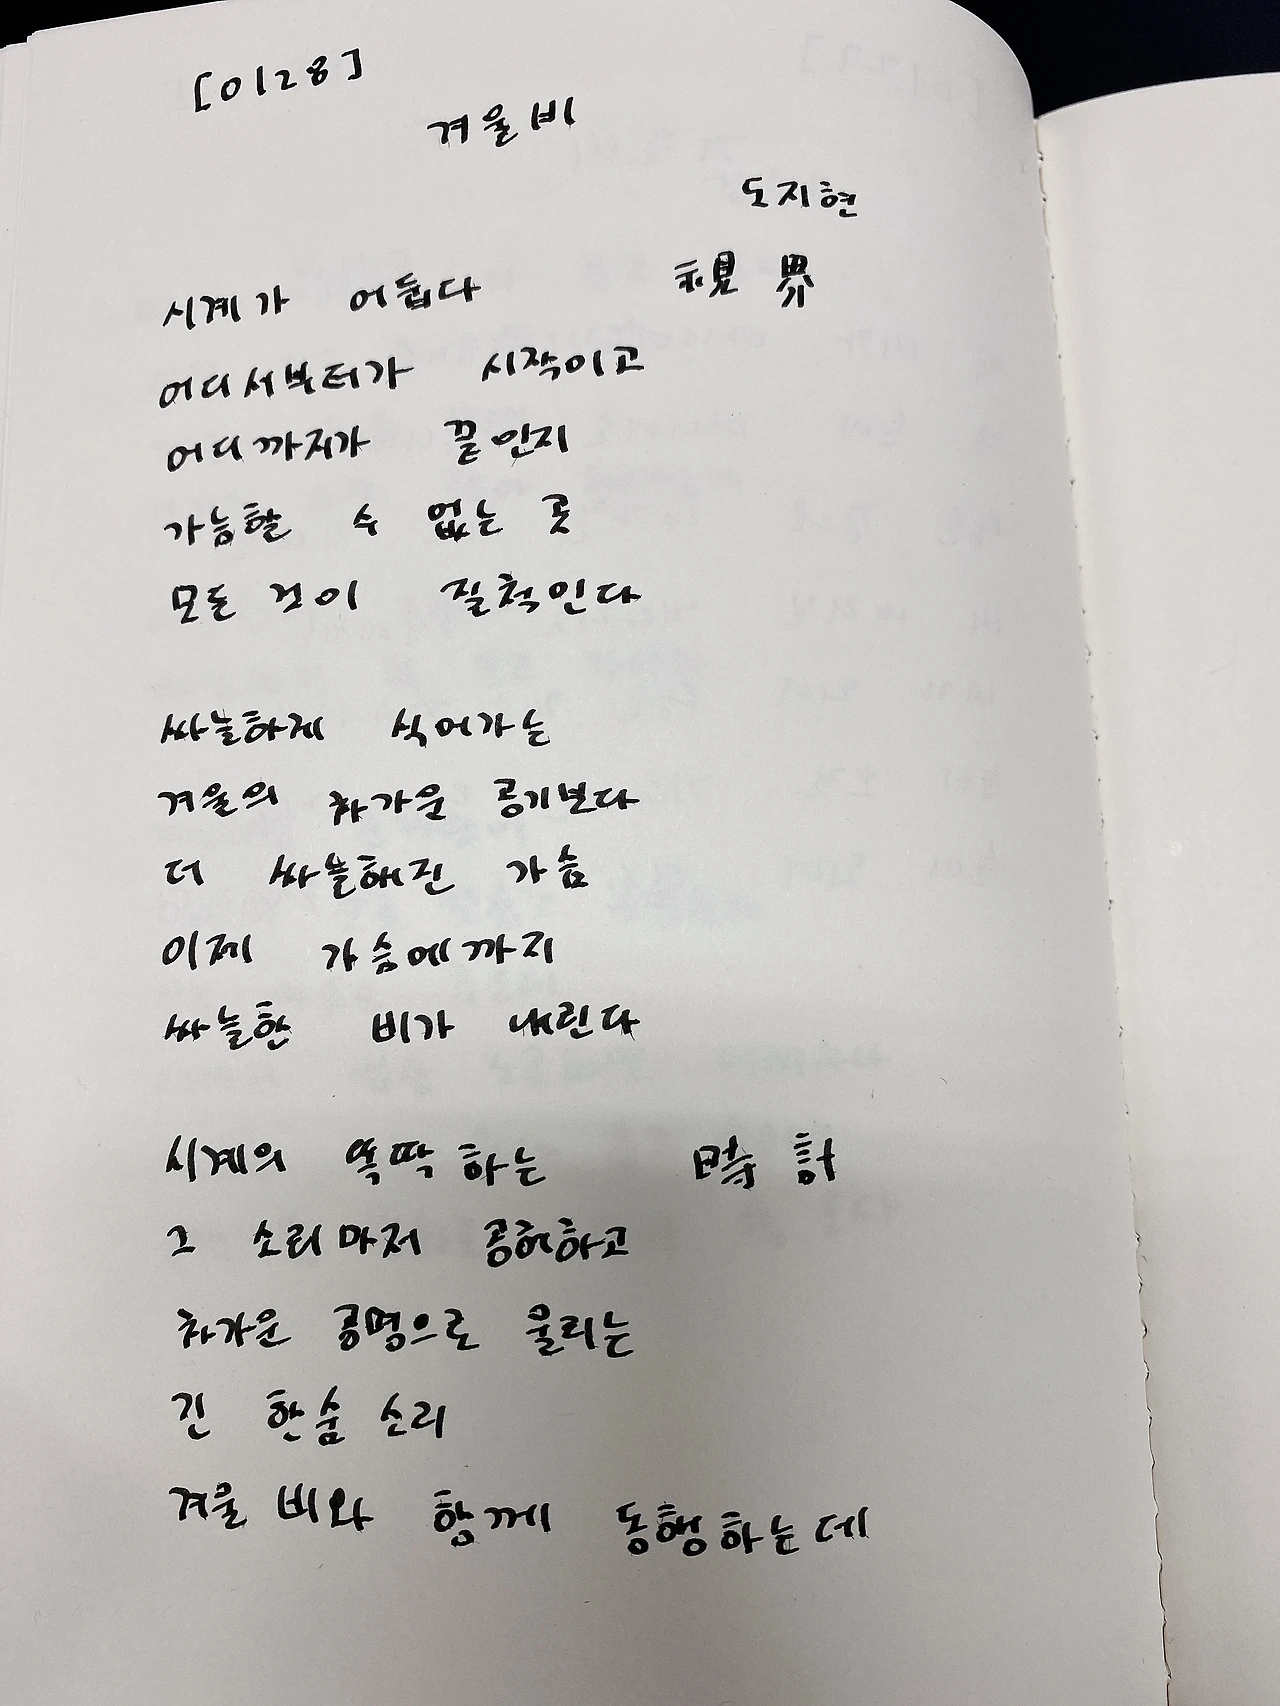 [0128]
겨울비
도지현
시계가 어둡다 視界
어디서부터가 시작이고
어디까지가 끝인지
가능할 수 없는 곳
모든 것이 질척인다
싸늘하게 식어가는
겨울의 차가운 공기보다
더 싸늘해진 가슴
이제 가슴에까지
싸늘한 비가 내린다
시계의 똑딱하는 時計
그 소리마저 공허하고
차가운 공명으로 울리는
긴 한숨 소리
겨울 비와 함께 동행하는데